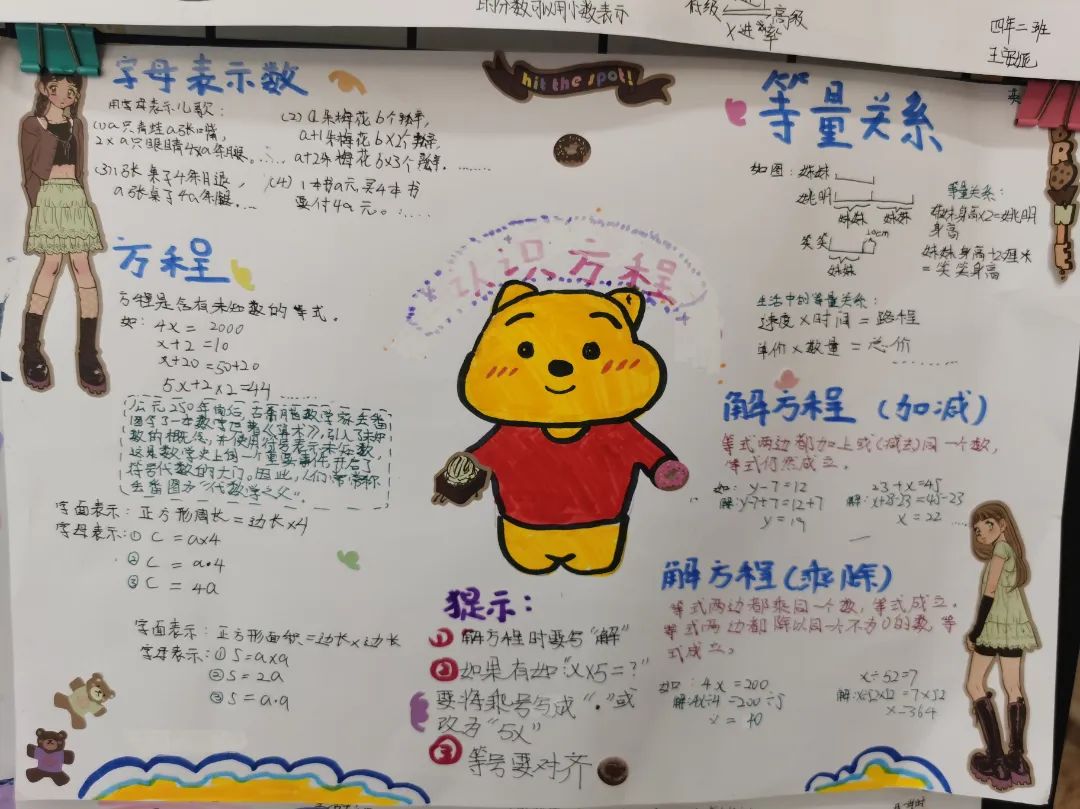 的分数可以用小数表示
低级 高级
X进率
四年二班
hit the spot!
字母表示数
用字母表示儿歌:
(1)a只青蛙a张口嘴,
2×a只眼睛4×a条腿。……
(3)1张桌子4条腿,
a张桌子4a条腿。…
(2)a朵梅花b个瓣,
a+1朵梅花b×2个瓣,
a+2朵梅花b×3个瓣。……
(4)1本书a元,买4本书
要付4a元。……
方程
方程是含有未知数的等式。
如:4x=2000
x+2=10
x+20=50+20
5x+2×2=44 ……
公元250年前后,古希腊数学家丢番
图写了一本数学巨著《算术》,引入了未知
数的概念,并使用符号表示未知数,
这是数学史上的一个重要事件,开启了
符号代数的大门。因此,人们常常称
丢番图为“代数学之父”。
字面表示:正方形周长=边长×4
字母表示:① C=a×4
② C=a·4
③ C=4a
字面表示:正方形面积=边长×边长
字母表示:① S=a×a
② S=2a
③ S=a·a
认识方程
提示:
① 解方程时要写“解”
② 如果有如“X×5=?”
要将乘号写成“·”或
改为“5X”
③ 等号要对齐
等量关系
BROWNIE
如图:妹妹
姚明
妹妹 妹妹
笑笑
妹妹
等量关系:
妹妹身高×2=姚明
身高
妹妹身高+20厘米
=笑笑身高
生活中的等量关系:
速度×时间=路程
单价×数量=总价
……
解方程(加减)
等式两边都加上或(减去)同一个数,
等式仍然成立。
如: y-7=12
解:y-7+7=12+7
y=19
23+x=45
解:x+23-23=45-23
x=22 ……
解方程(乘除)
等式两边都乘同一个数,等式成立。
等式两边都除以同一个不为0的数,等
式成立。
如: 4x=200
x=40
x÷52=7
x=364